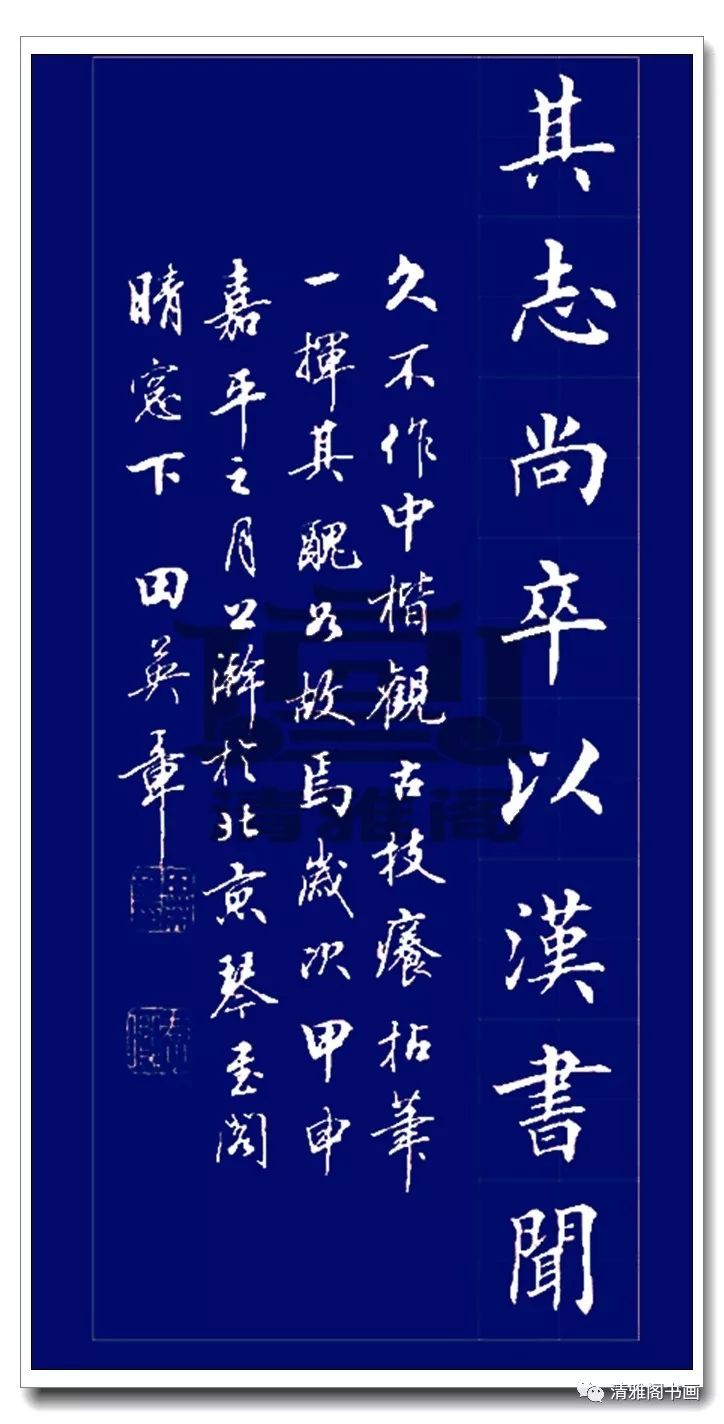 其志尚卒以漢書聞
久不作中楷觀古技癢拈筆
一揮其醜如故焉歲次甲申
嘉平之月公瀚於北京琴玉閣
晴窓下 田英章
清雅阁
清雅阁书画